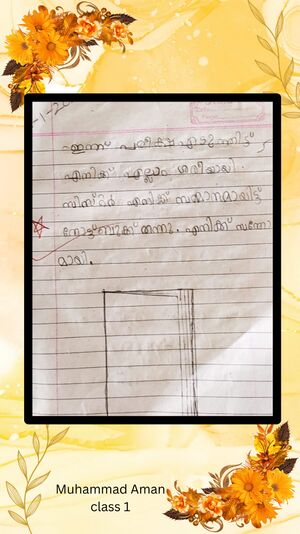 -1-20
ഇന്ന് പരീക്ഷ എഴുതിട്ട്
എനിക്ക് എല്ലാം ശരിയായി.
സിസ്റ്റർ എനിക്ക് സമ്മാനമായിട്ട്
നോട്ട്ബുക്ക് തന്നു. എനിക്ക് സന്തോ
മായി.
Muhammad Aman
class 1